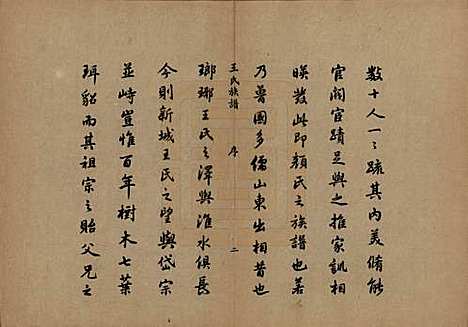 數十人一〻疏其內美脩能
官閥宦蹟足與之推家訓相
暎發此即顏氏之族譜也若
乃魯國多儒山東出相昔也
王氏族譜 序 二
瑯琊王氏之澤與淮水俱長
今則新城王氏之望與岱宗
並峙豈惟百年樹木七葉
珥貂而其祖宗之貽父兄之